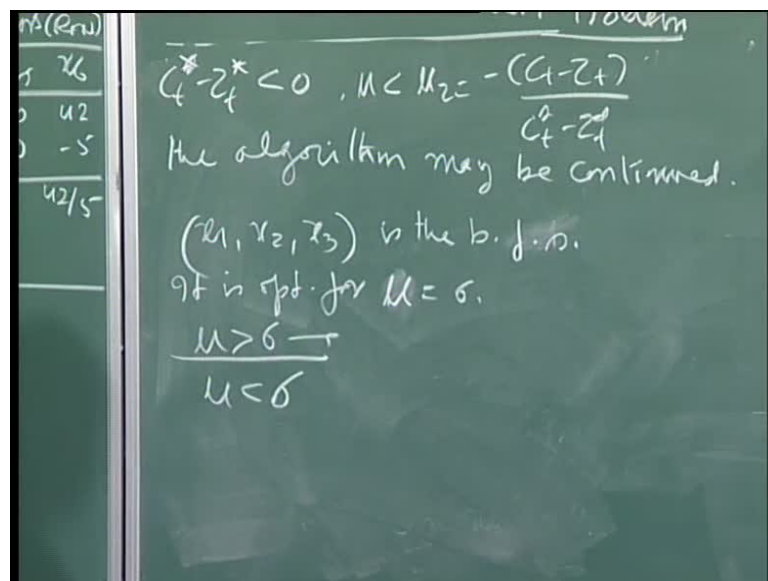 x6
42
-5
42/5
Problem
C_t^* - Z_t^* < 0 , μ < μ_2 = -(C_t - Z_t) / C_t^* - Z_t^*
the algorithm may be continued.
(x1, x2, x3) is the b.f.s.
It is opt. for μ = 6.
μ > 6 —
μ < 6